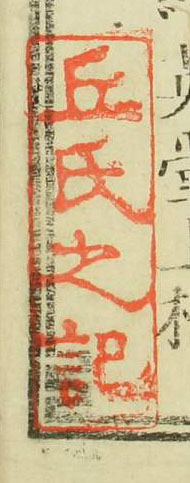 丘氏之記